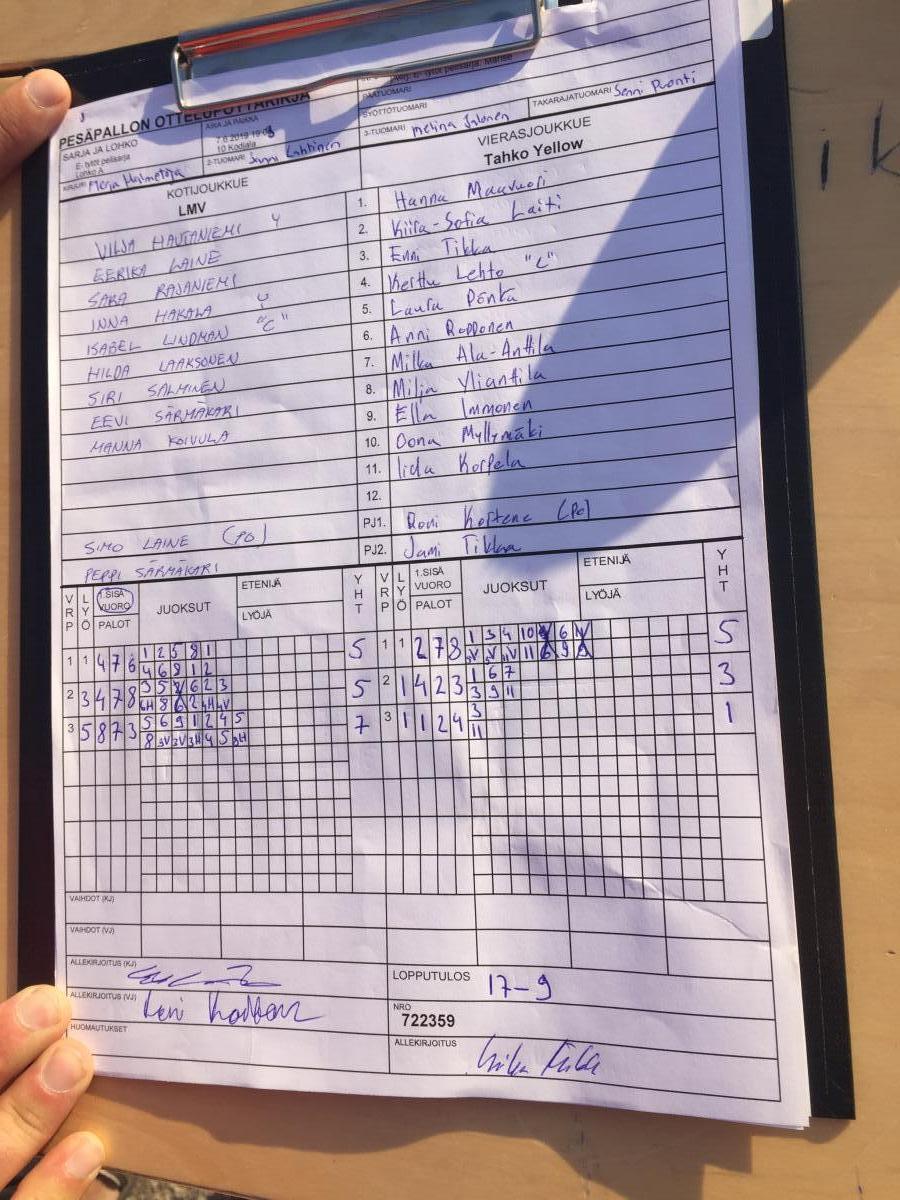 PESÄPALLON OTTELUPÖYTÄKIRJA
SARJA JA LOHKO
E- tytöt pelisarja
Lohko A
AIKA JA PAIKKA
10 Kodiala
PÄÄTUOMARI
SYÖTTÖTUOMARI
TAKARAJATUOMARI Senni Puonti
KIRJURI Merja Halmetoja
2-TUOMARI Lahtinen
3-TUOMARI Melina Salonen
KOTIJOUKKUE
VIERASJOUKKUE
LMV
Tahko Yellow
VILJA HAUTANIEMI
1. Hanna Maavuori
EERIKA LAINE
2. Kiira-Sofia Laiti
SARA RAJANIEMI
3. Enni Tikka
INNA HAKALA
4. Kerttu Lehto "C"
ISABEL LINDMAN "C"
5. Laura Pönkä
HILDA LAAKSONEN
6. Anni Ropponen
SIRI SALMINEN
7. Milka Ala-Anttila
EEVI SÄRMÄKARI
8. Milja Yliantila
MANNA KOIVULA
9. Ella Immonen
10. Oona Myllymäki
11. Iida Korpela
12.
SIMO LAINE (PO)
PJ1. Roni Kortene (Po)
PEPPI SÄRMÄKARI
PJ2. Jami Tikka
VRP LYÖ 1.SISÄ VUORO PALOT JUOKSUT ETENIJÄ LYÖJÄ YHT VRP LYÖ 1.SISÄ VUORO PALOT JUOKSUT ETENIJÄ LYÖJÄ YHT
1 1 4 7 6 1 2 5 8 1 5 1 1 2 7 8 1 3 4 10 6 5
4 6 8 1 2
2 3 4 7 8 3 5 6 2 3 5 2 1 4 2 3 1 6 7 3
6H 8 2 4H 4V 3 9 11
3 5 8 7 3 5 6 9 1 2 4 5 7 3 1 1 2 4 3 1
8 3V 3V 3H 4 5 3H 11
VAIHDOT (KJ)
VAIHDOT (VJ)
ALLEKIRJOITUS (KJ)
LOPPUTULOS 17-9
ALLEKIRJOITUS (VJ)
NRO
722359
HUOMAUTUKSET
ALLEKIRJOITUS